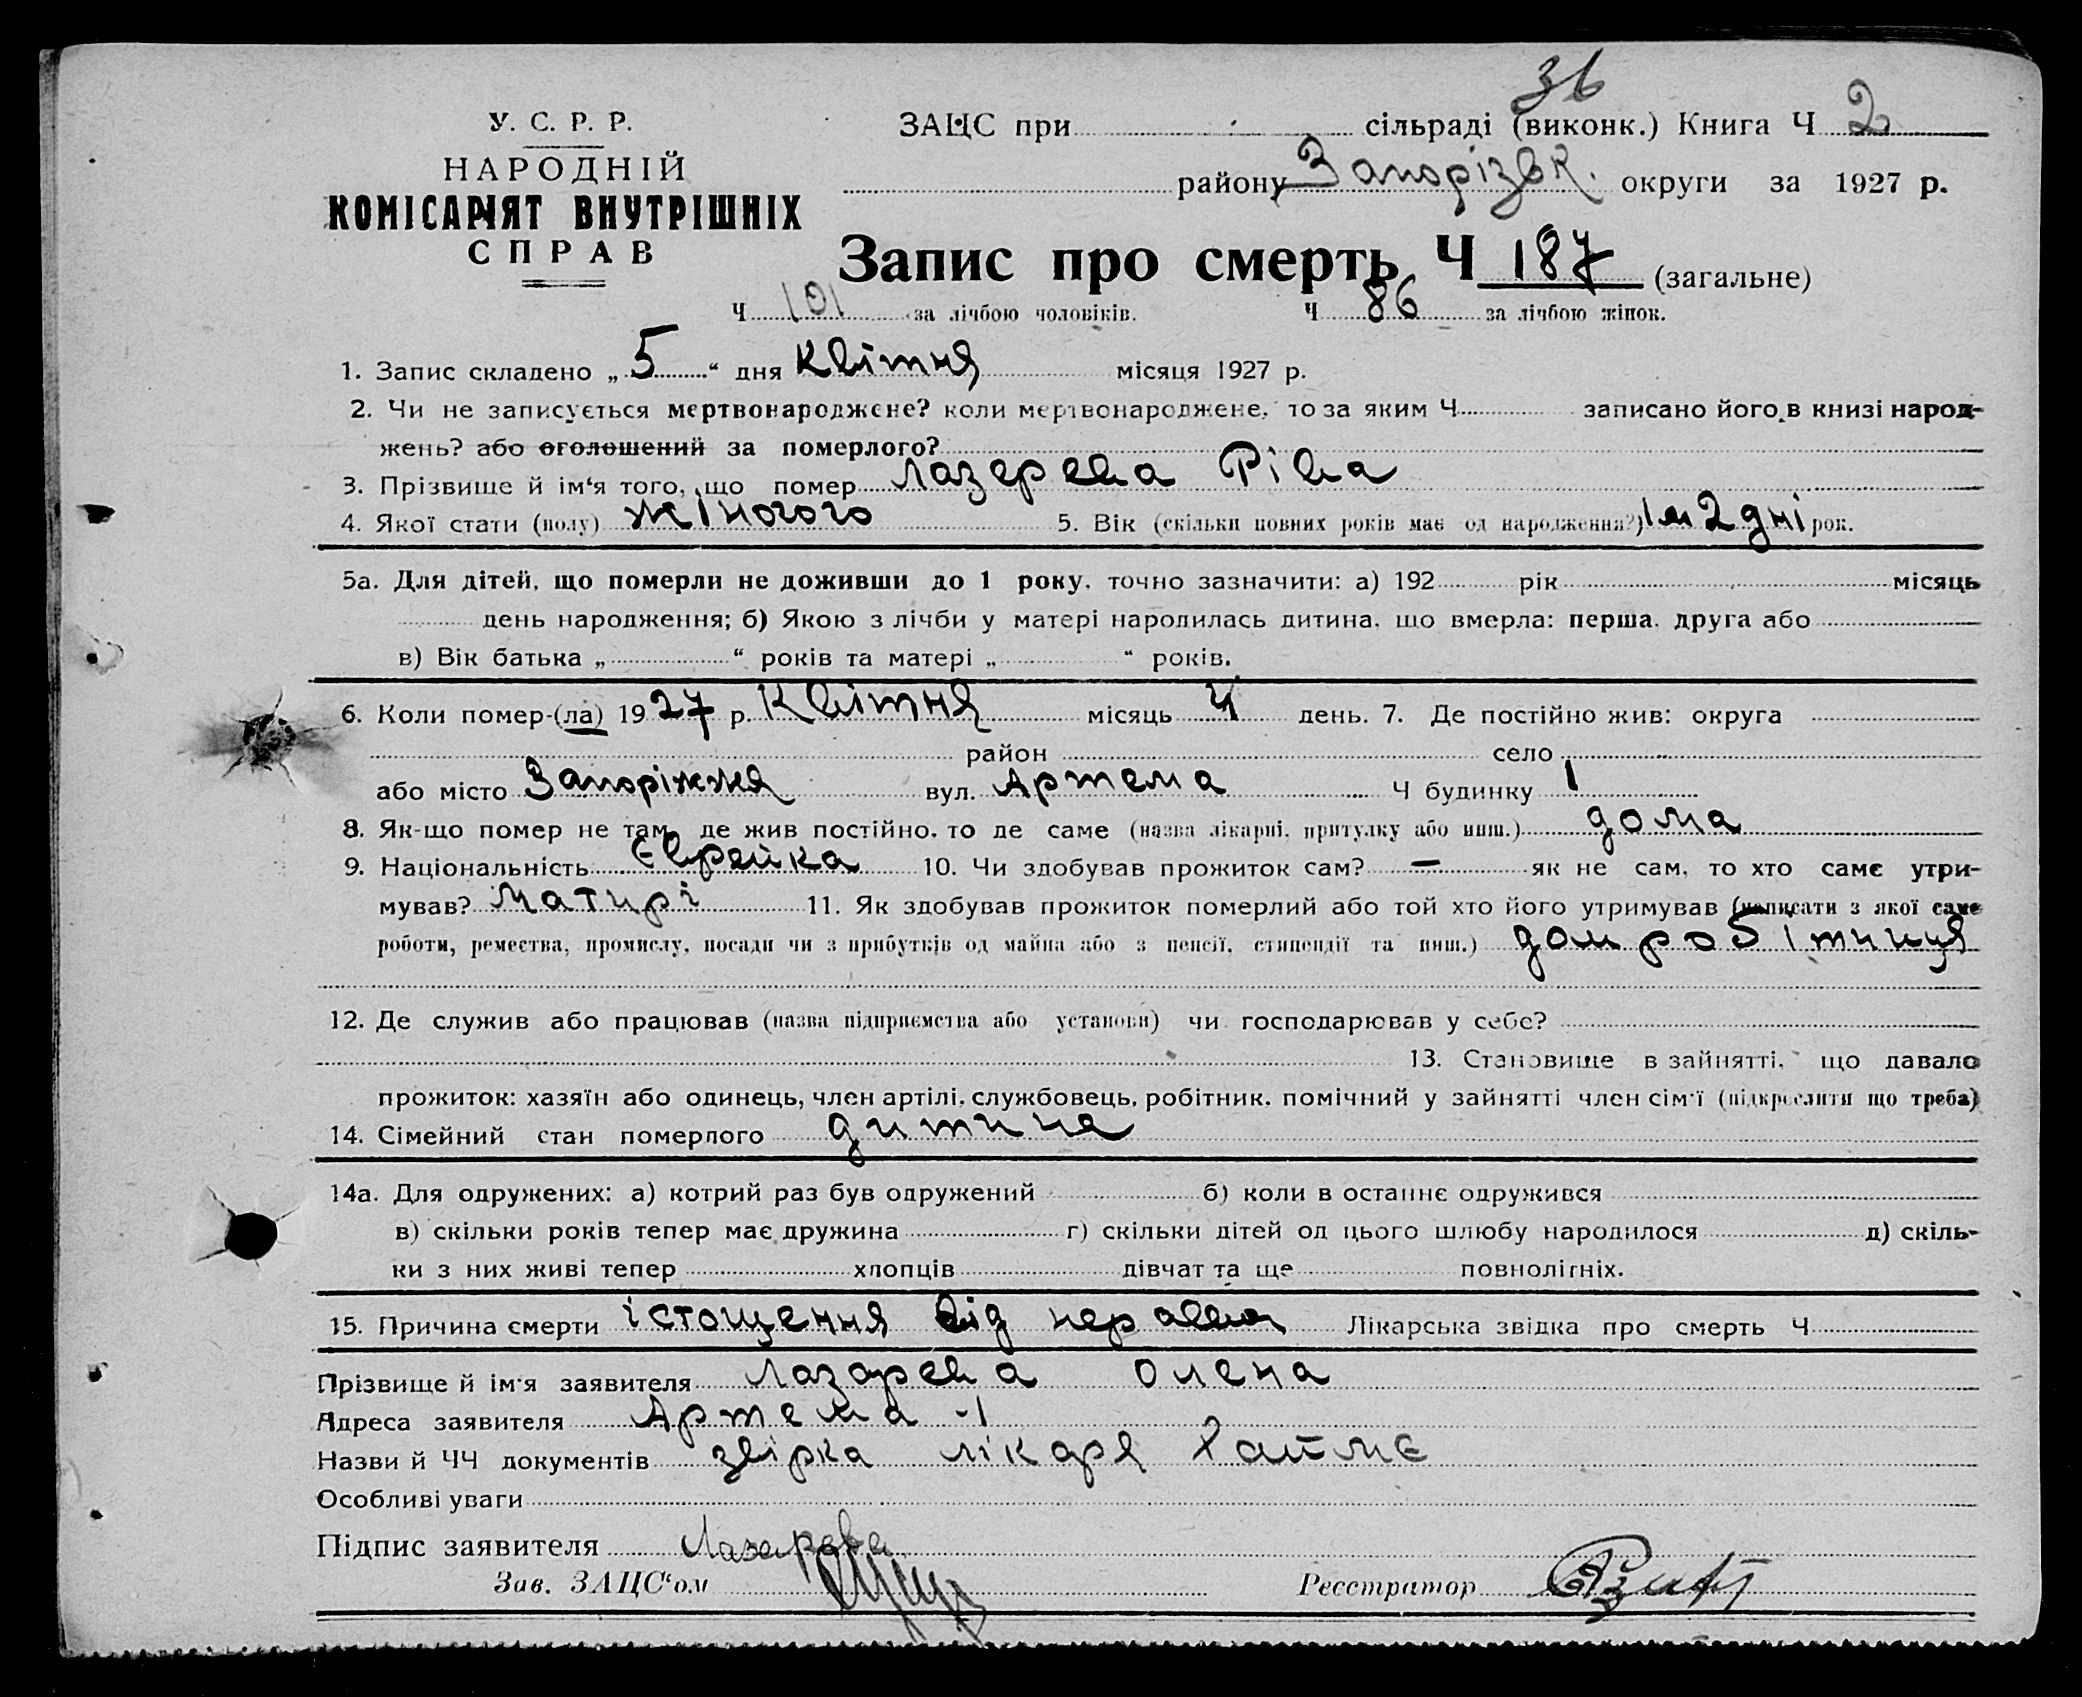 36
У. С. Р. Р.
НАРОДНІЙ
КОМІСАРІЯТ ВНУТРІШНІХ
СПРАВ
ЗАЦС при сільраді (виконк.) Книга Ч 2
району Запорізьк. округи за 1927 р.
Запис про смерть Ч 187 (загальне)
Ч 101 за лічбою чоловіків. Ч 86 за лічбою жінок.
1. Запис складено „ 5 “ дня Квітня місяця 1927 р.
2. Чи не записується мертвонароджене? коли мертвонароджене, то за яким Ч записано його в книзі народ-
жень? або оголошений за померлого?
3. Прізвище й ім‘я того, що помер Лазерева Ріва
4. Якої стати (полу) жіночого 5. Вік (скільки повних років має од народження?) 1 м 2 дні рок.
5а. Для дітей, що померли не доживши до 1 року, точно зазначити: а) 192 рік місяць
день народження; б) Якою з лічби у матері народилась дитина, що вмерла: перша, друга або
в) Вік батька „ “ років та матері „ “ років.
6. Коли помер-(ла) 1927 р. Квітня місяць 4 день. 7. Де постійно жив: округа
район село
або місто Запоріжжя вул. Артема Ч будинку 1
8. Як-що помер не там, де жив постійно, то де саме (назва лікарні, притулку або инш.) дома
9. Національність Єврейка 10. Чи здобував прожиток сам? — як не сам, то хто саме утри-
мував? Матирі 11. Як здобував прожиток померлий або той хто його утримував (написати з якої саме
роботи, ремества, промислу, посади чи з прибутків од майна або з пенсії, стипендії та инш.) дом робітниця
12. Де служив або працював (назва підприємства або установи) чи господарював у себе?
13. Становище в зайнятті, що давало
прожиток: хазяїн або одинець, член артілі, службовець, робітник, помічний у зайнятті член сім‘ї (підкреслити що треба)
14. Сімейний стан померлого дитина
14а. Для одружених: а) котрий раз був одружений б) коли в останнє одружився
в) скільки років тепер має дружина г) скільки дітей од цього шлюбу народилося д) скіль-
ки з них живі тепер хлопців дівчат та ще повнолітніх.
15. Причина смерти істощення від Лікарська звідка про смерть Ч
Прізвище й ім‘я заявителя Лазарева Олена
Адреса заявителя Артема - 1
Назви й ЧЧ документів звірка лікаря
Особливі уваги
Підпис заявителя Лазарева
Зав. ЗАЦС“ом
Реєстратор